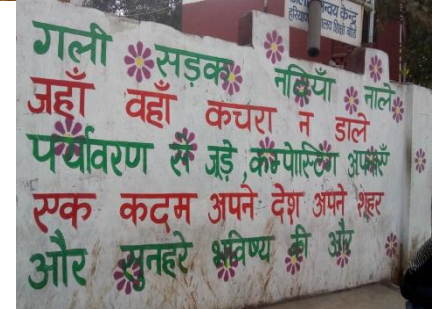 समन्वय केन्द्र
गली सड़क नदियाँ नाले
जहाँ वहाँ कचरा न डाले
पर्यावरण से जुड़े, कम्पोस्टिंग अपनाएँ
एक कदम अपने देश अपने शहर
और सुनहरे भविष्य की और